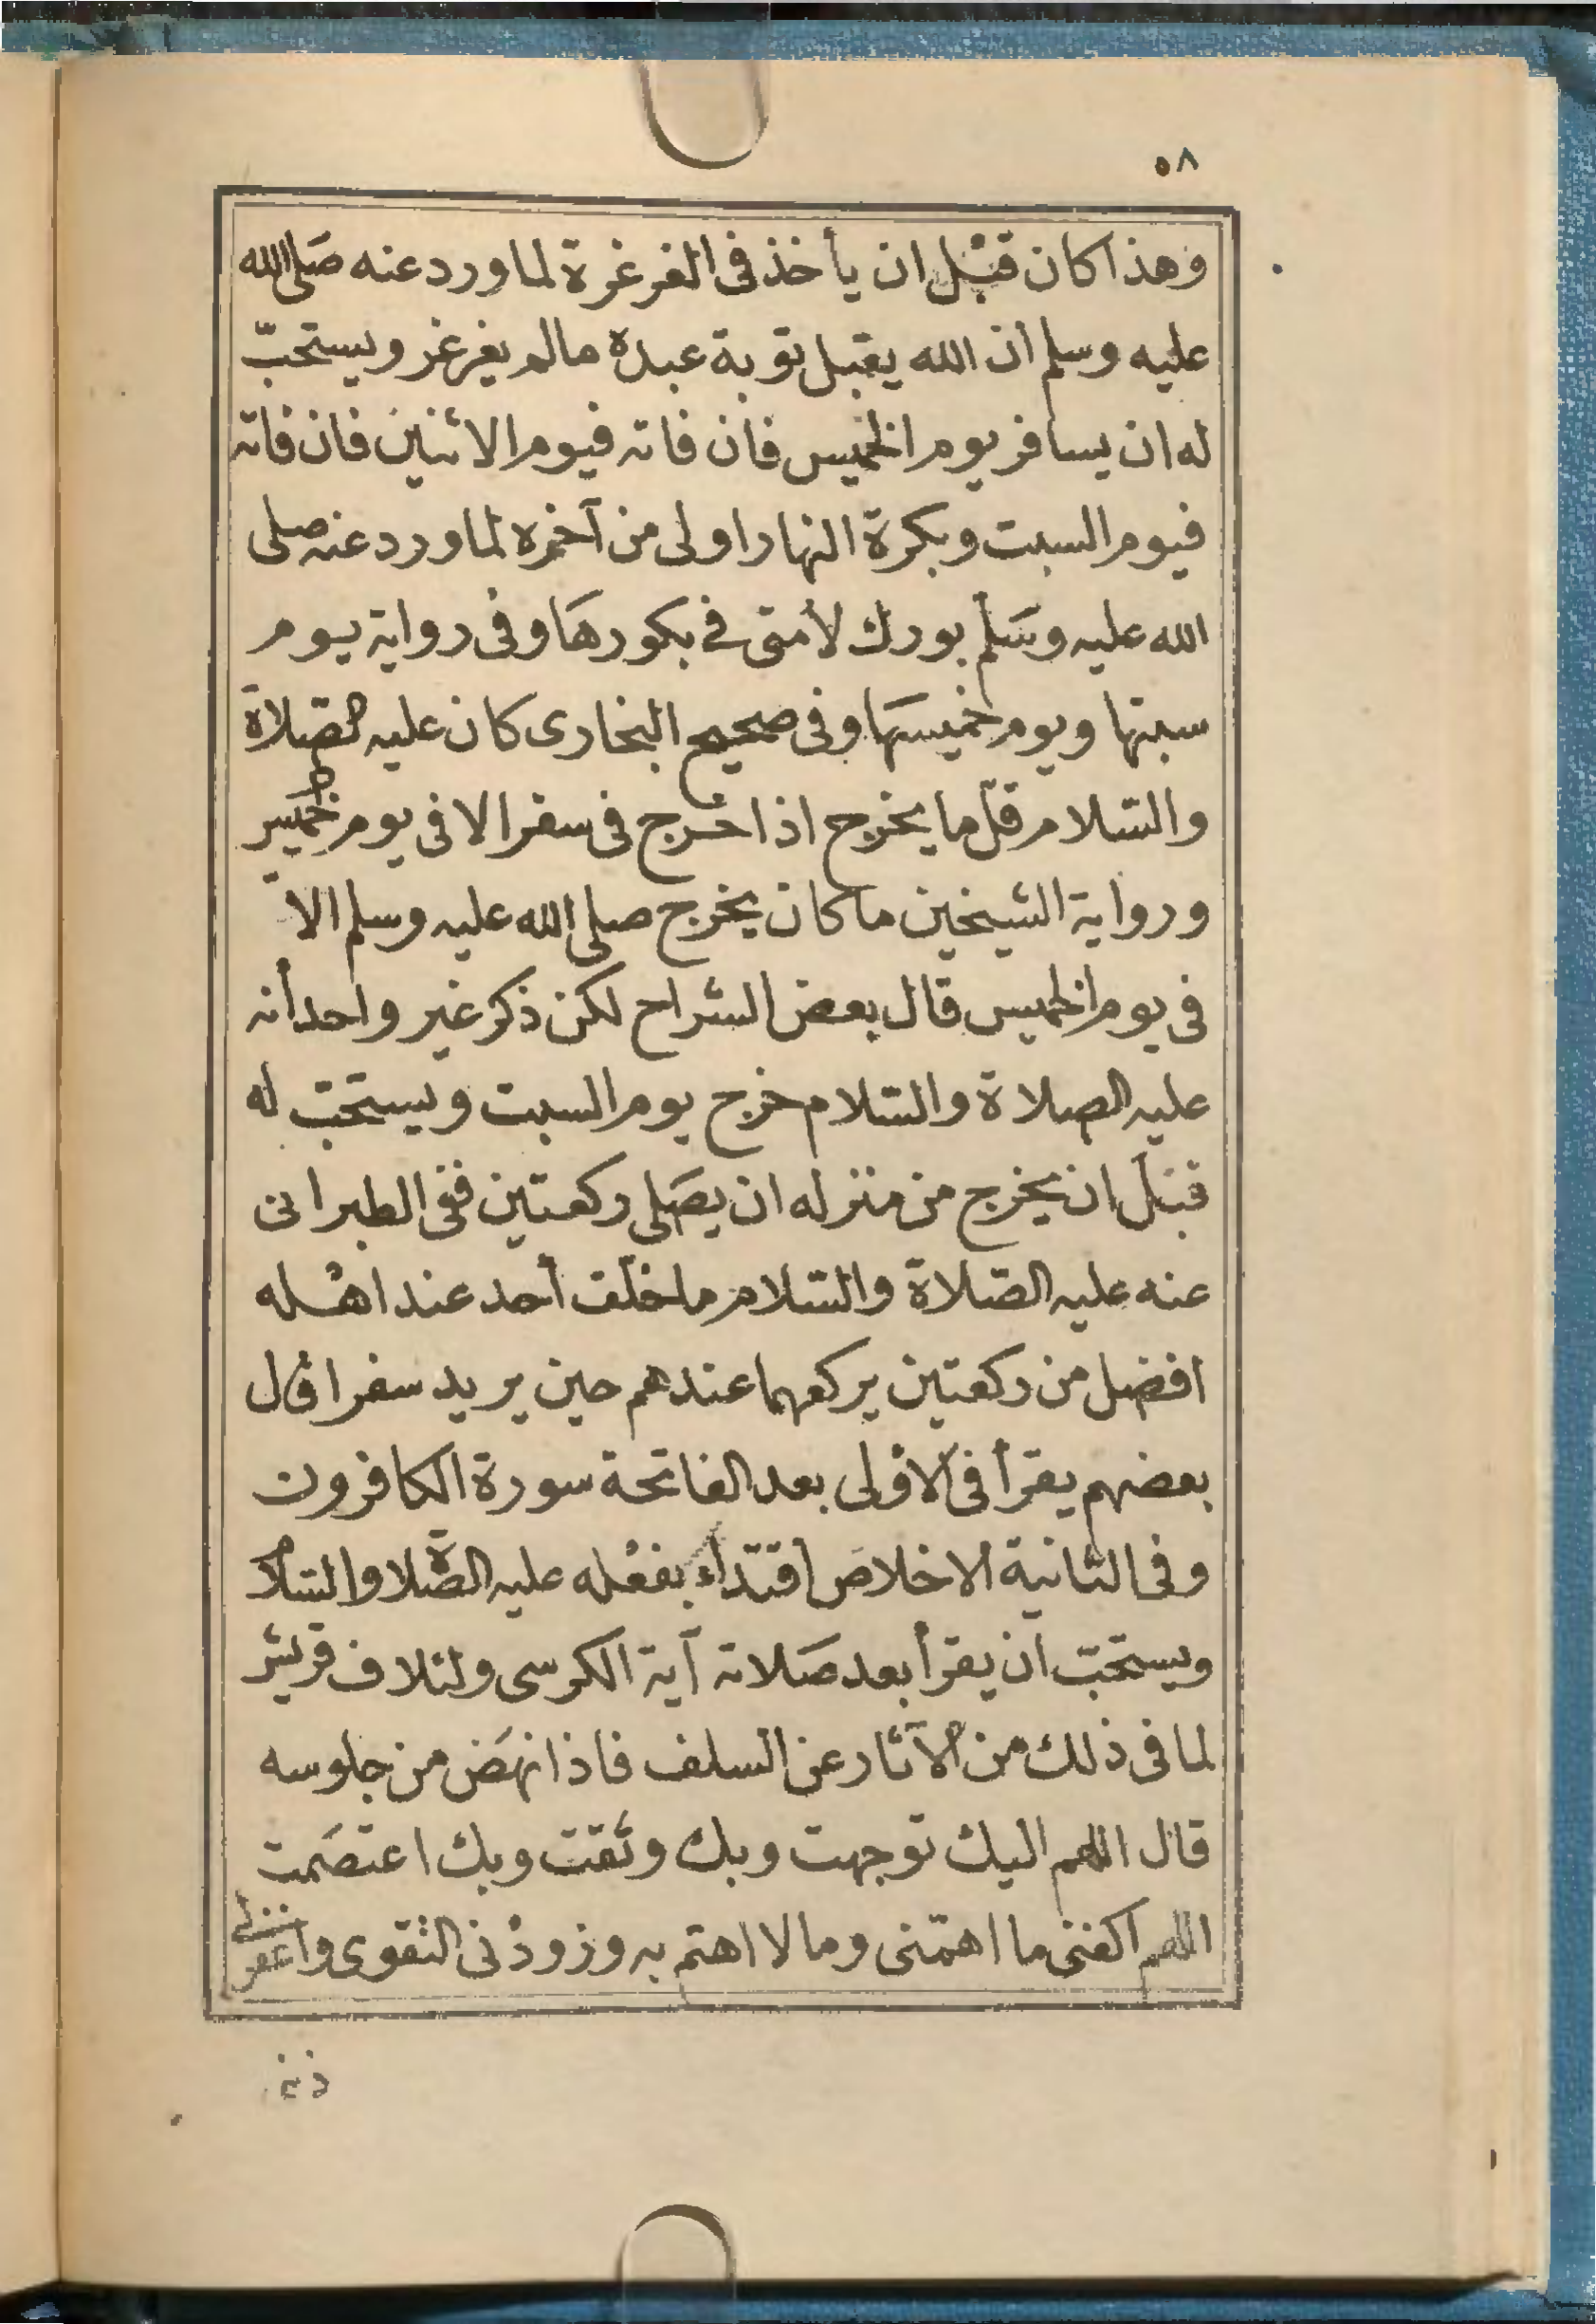 ٥٨
وهذا كان قبْل ان يأخذ فى الغرغرة لما ورد عنه صَلى الله
عليه وسلم ان الله يقبل توبة عبده مالم يغرغر ويستحبّ
له ان يسافر يوم الخميس فان فاته فيوم الاثنين فان فاته
فيوم السبت وبكرة النهار اولى من آخره لما ورد عنه صلى
الله عليه وسَلم بورك لأمتى فى بكورهَا وفى رواية يوم
سبتها ويوم خميسهَا وفى صحيح البخارى كان عليه الصّلاة
والسّلام قلّ ما يخرج اذا خرج فى سفر الا فى يوم الخميس
ورواية الشيخين ما كان يخرج صلى الله عليه وسلم الاّ
فى يوم الخميس قال بعض الشراح لكن ذكر غير واحد أنه
عليه الصلاة والسّلام خرج يوم السبت ويستحبّ له
قبَل ان يخرج من منزله ان يصَلى ركعتين ففى الطبرانى
عنه عليه الصّلاة والسّلام ما خلّف أحد عند اهْله
افضل من ركعتين يركعهما عندهم حين يريد سفرا قال
بعضهم يقرأ فى الأولى بعد الفاتحة سورة الكافرون
وفى الثانية الاخلاص اقتدَاء بفعْله عليه الصّلاة والسّلام
ويستحبّ ان يقرأ بعد صَلاته آية الكرسى ولئلاف قريش
لما فى ذلك من الآثار عن السلف فاذا نهَض من جلوسه
قال اللهم اليك توجهت وبك وثقت وبك اعتصَمت
اللهم اكفنى ما اهمّنى وما لا اهتم به وزودْنى التقوى واغفر لى
ذنبى